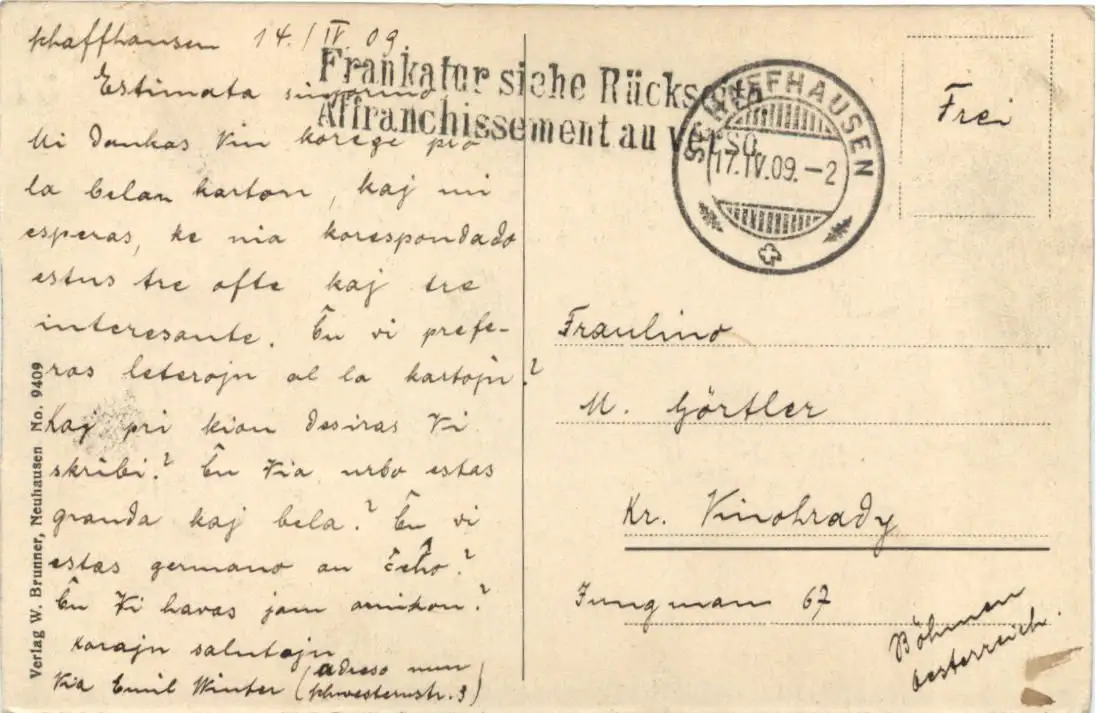 Schaffhausen 14./IV 09
Estimata sinjorino
Mi dankas Vin korege pro
la belan karton, kaj mi
esperas, ke nia korespondado
estus tre ofte kaj tre
interesante. Ĉu vi prefe-
ras leterojn al la kartojn?
Kaj pri kion desiras Vi
skribi? Ĉu Via urbo estas
granda kaj bela? Ĉu vi
estas germano au ĉeĥo?
Ĉu Vi havas jam amikon?
Korajn salutojn
Via Emil Winter (adreso nun
Schwesternstr. 3)
Verlag W. Brunner, Neuhausen No. 9409
Frankatur siehe Rückseite
Affranchissement au verso
SCHAFFHAUSEN
17.IV.09.–2
Frei
Fraulino
M. Görtler
Kr. Vinohrady
Jungmann 67
Böhmen
Oesterreich.